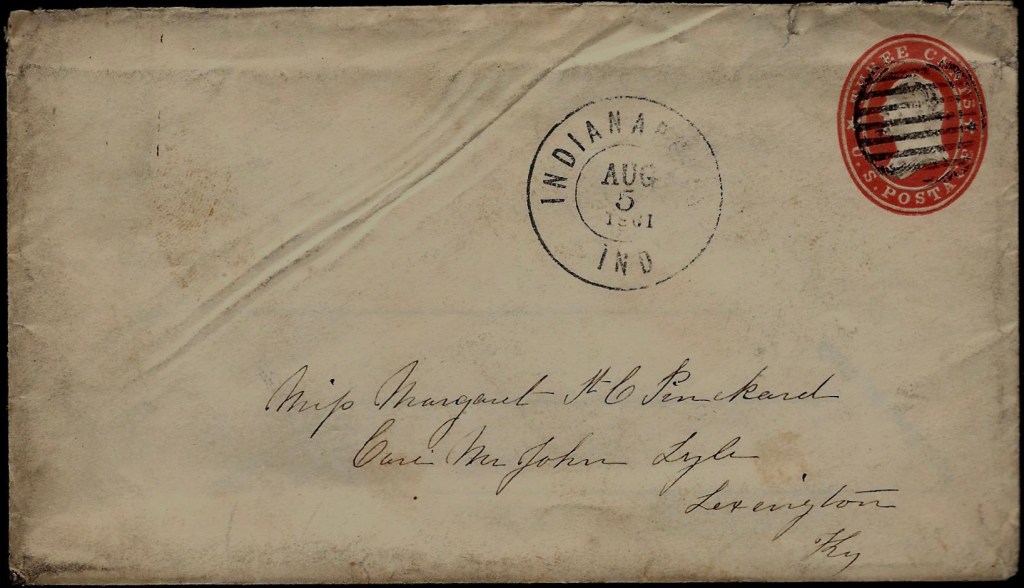 THREE CENTS
U.S. POSTA
INDIANAPOLIS
AUG
5
1861
IND
Miss Margaret H C Pinckard
Care Mr John Lyle
Lexington
Ky